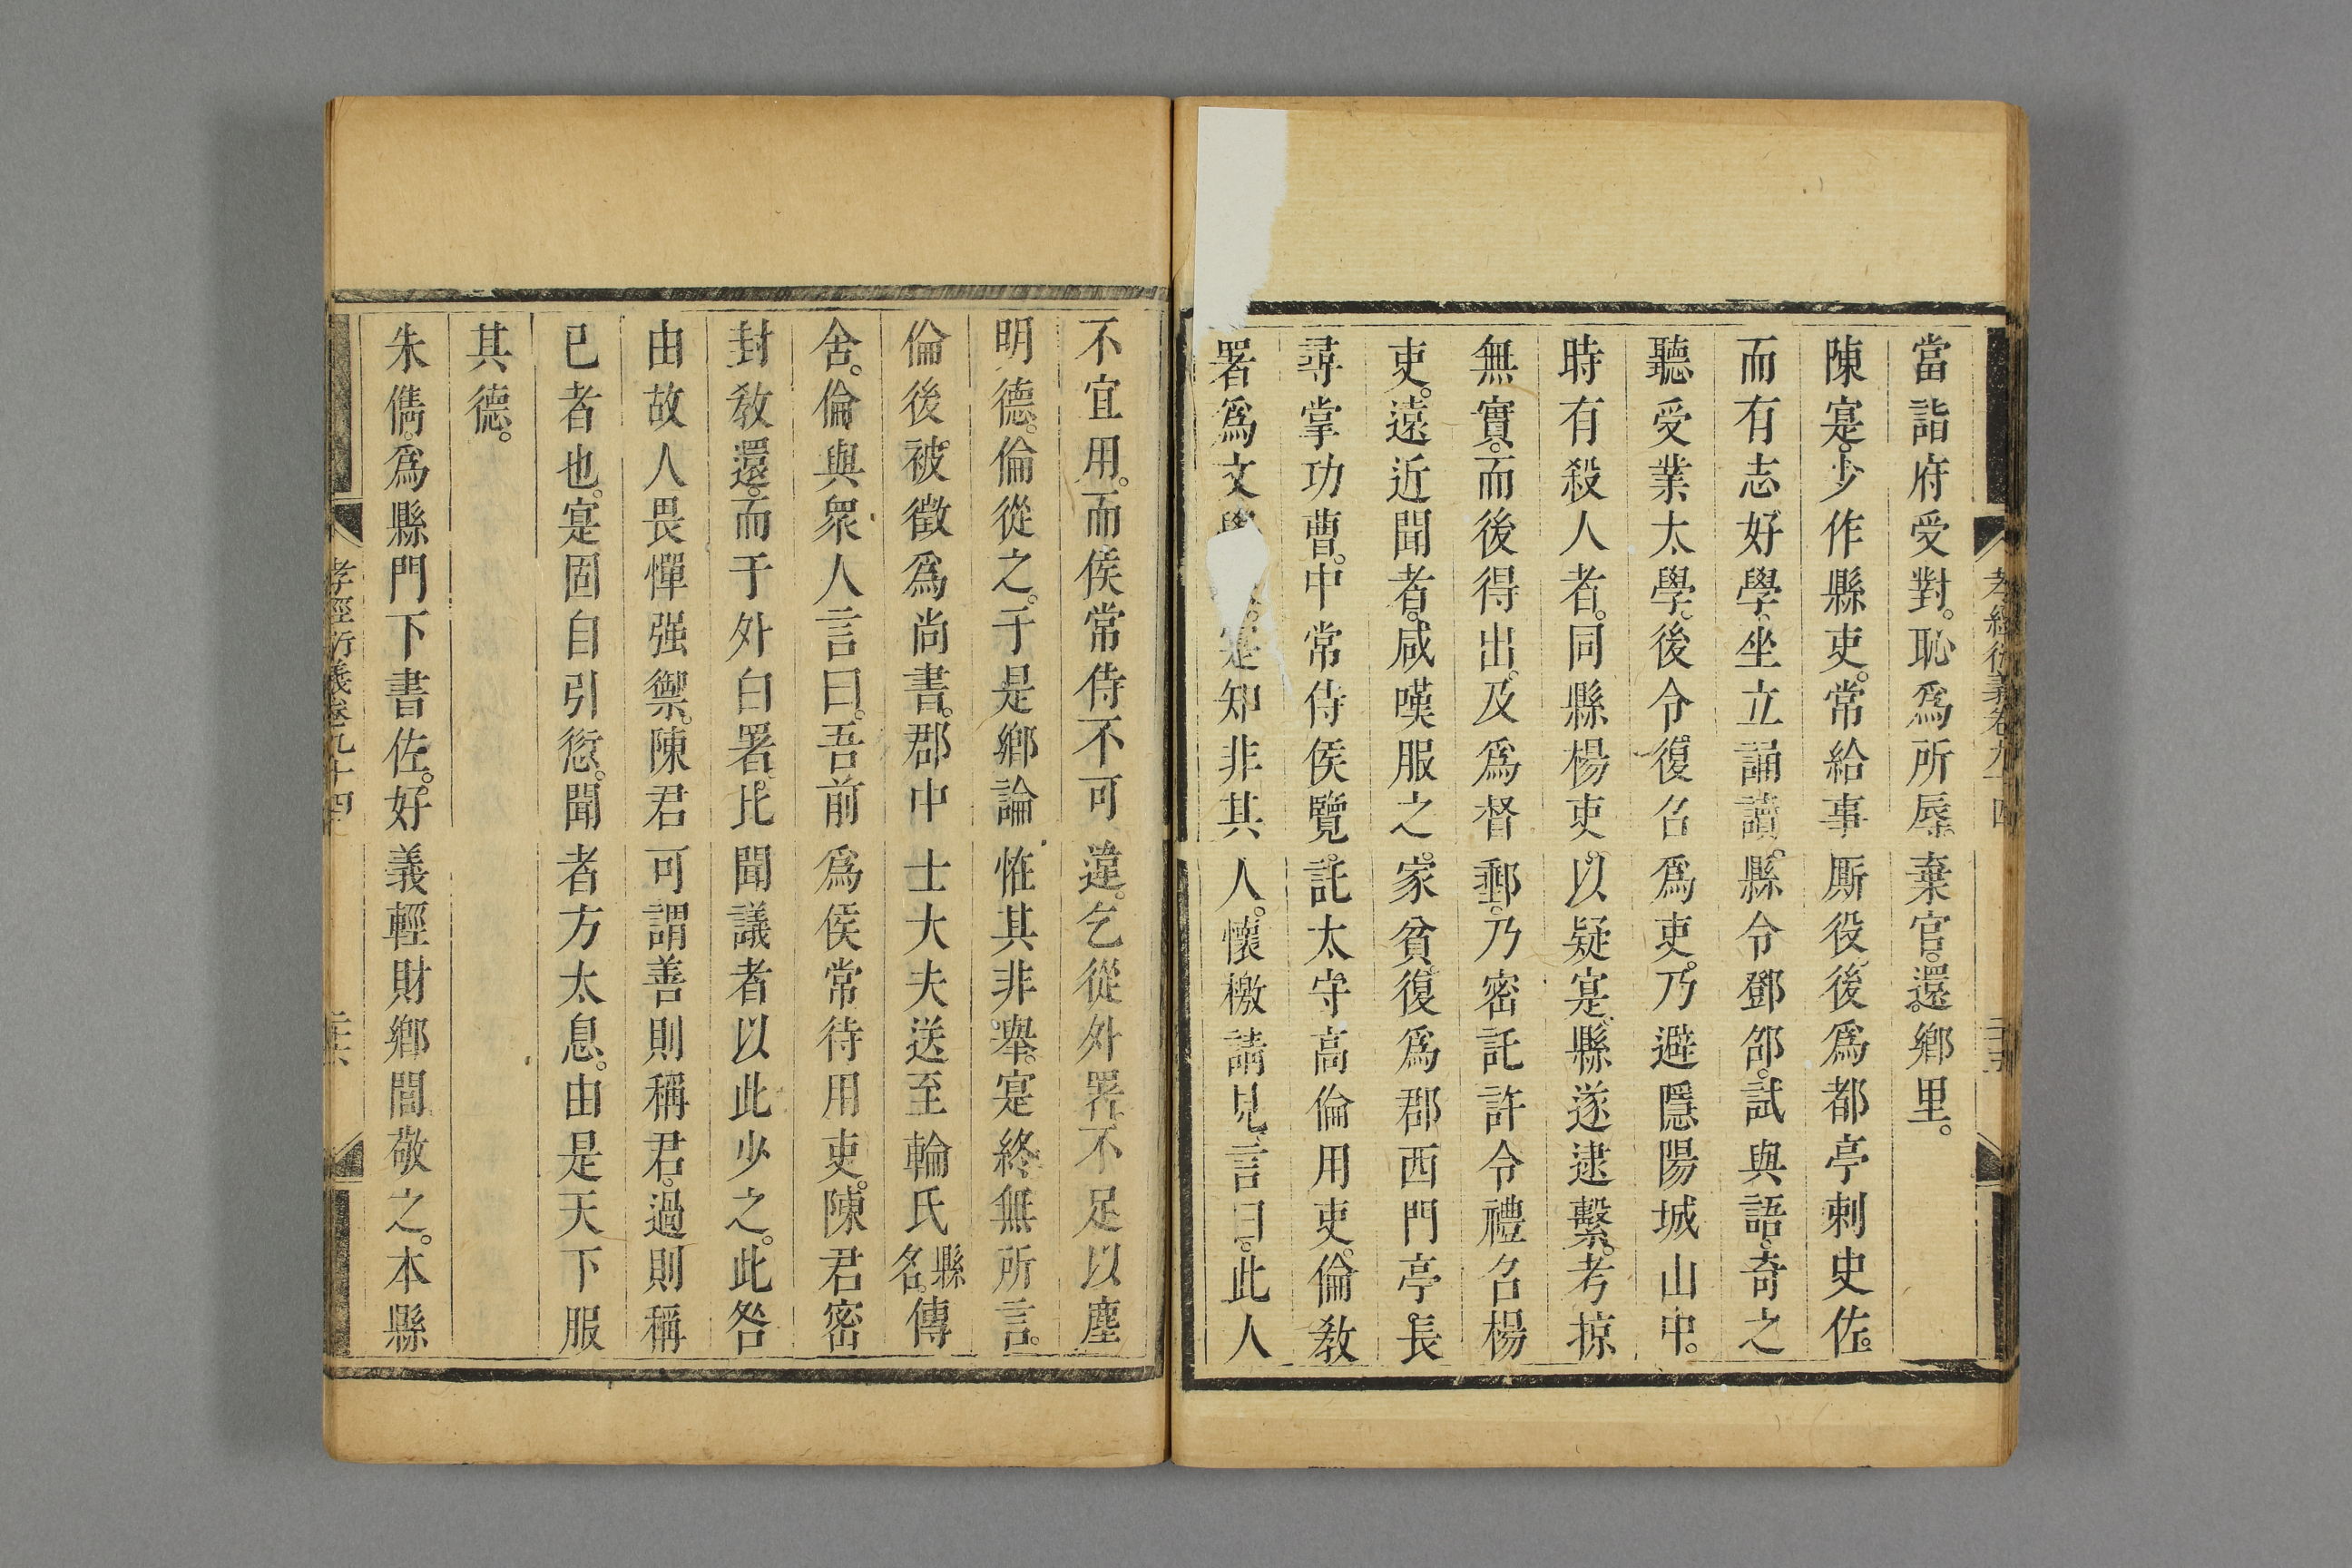 當詣府受對。恥爲所辱。棄官。還鄉里。
陳寔。少作縣吏。常給事厮役。後爲都亭刺史佐。
而有志好學。坐立誦讀。縣令鄧邵。試與語。奇之
聽受業太學。後令復召爲吏。乃避隱陽城山中。
時有殺人者。同縣楊吏。以疑寔。縣遂逮繫。考掠
無實。而後得出。及爲督郵。乃密託許令禮召楊
吏。遠近聞者。咸嘆服之。家貧。復爲郡西門亭長
尋掌功曹。中常侍侯覽。託太守高倫用吏。倫敎
署爲文寔知非其人。懷檄請見。言曰。此人
不宜用。而侯常侍不可違。乞從外署。不足以塵
明德。倫從之。于是鄉論恠其非舉。寔終無所言。
倫後被徵爲尚書。郡中士大夫送至輪氏縣名。傳
舍。倫與衆人言曰。吾前爲侯常待用吏。陳君密
封敎還。而于外白署。比聞議者以此少之。此咎
由故人畏憚强禦。陳君可謂善則稱君。過則稱
已者也。寔固自引愆。聞者方太息。由是天下服
其德。
朱儁。爲縣門下書佐。好義輕財。鄉閭敬之。本縣
孝經衍義卷九十四
二十五
孝經衍義卷九十四
二十六